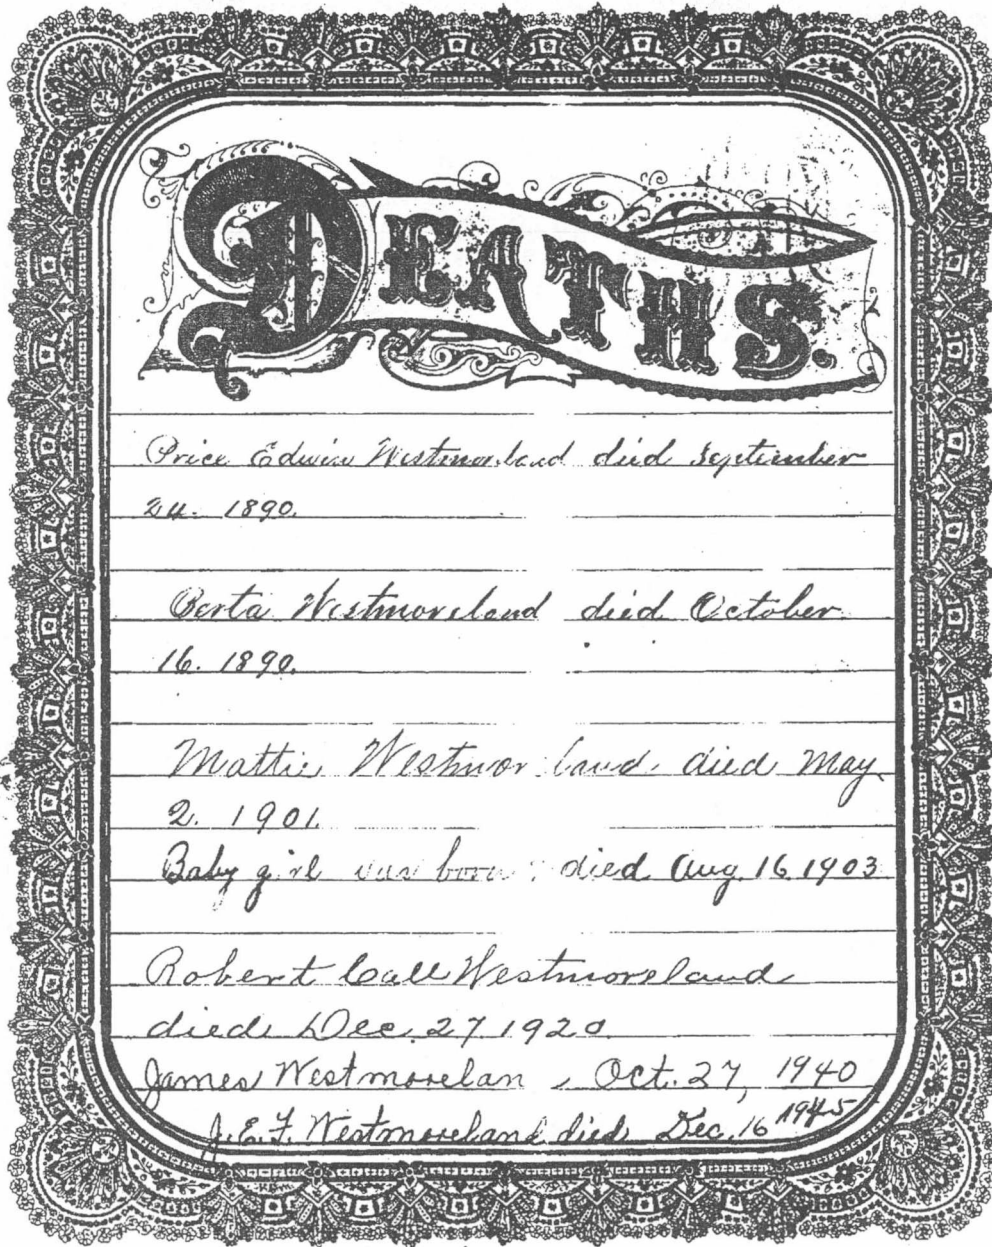 DEATHS.
Price Edwin Westmoreland died September
24. 1890.
Berta Westmoreland died October
16. 1890.
Mattie Westmoreland died May
2. 1901.
Baby girl was born : died Aug. 16. 1903
Robert Call Westmoreland
died Dec. 27 1920
James Westmorelan , Oct. 27, 1940
J.E.F. Westmoreland died Dec. 16 1945